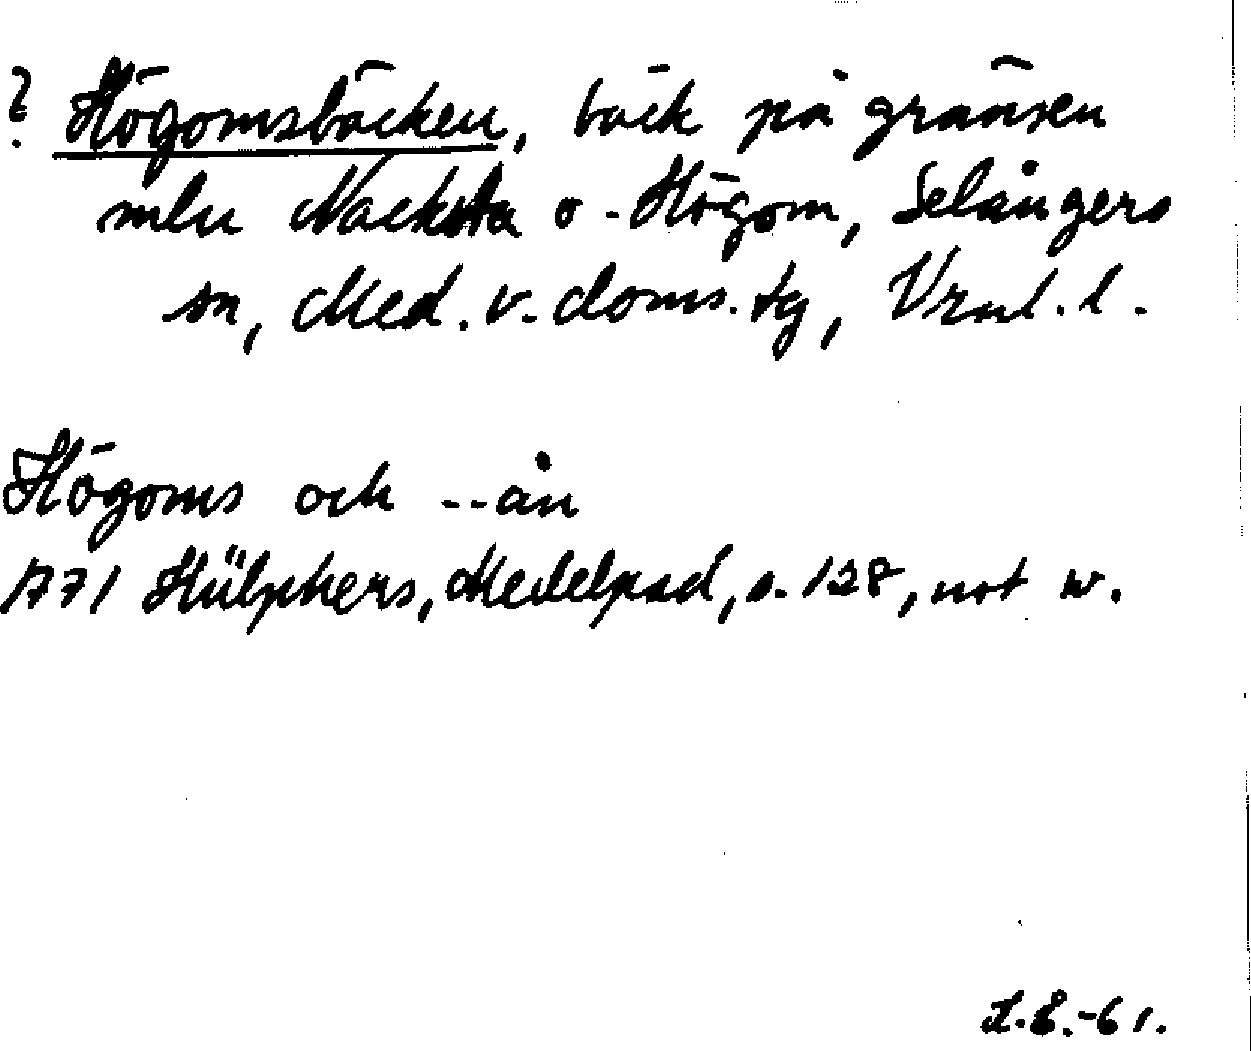 ? Högomsbäcken, bäck på gränsen
mln Nacksta o. Högom, Selångers
sn, Med. v. doms. tg, Vrnl. l.
Högoms och --ån
1771 Hülphers, Medelpad, s. 128, not w.
-61.